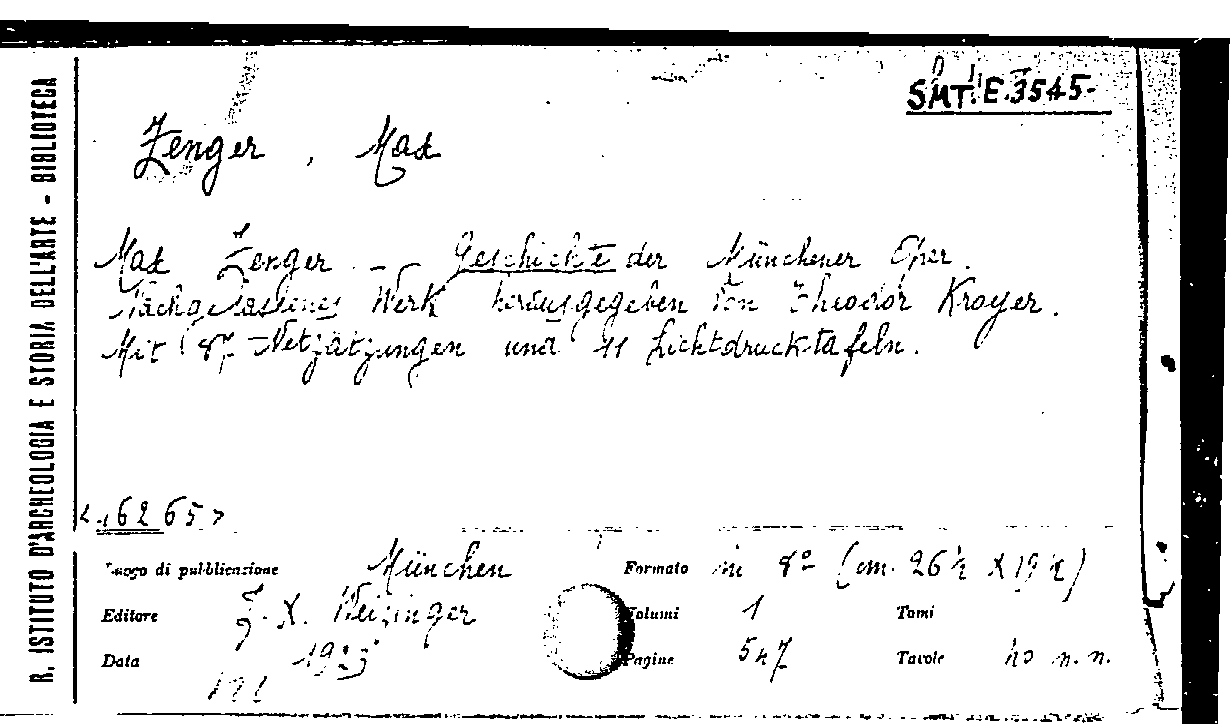 R. ISTITUTO D'ARCHEOLOGIA E STORIA DELL'ARTE - BIBLIOTECA
SMT. E. 3545-
Zenger, Max
Max Zenger. - Geschichte der Münchener Oper.
Nachgelassenes Werk herausgegeben von Theodor Kroyer.
Mit 87 Netzätzungen und 11 Lichtdrucktafeln.
Luogo di pubblicazione München Formato in 8º (cm. 26½ X 19½)
Editore F. X. Weizinger Volumi 1 Tomi
Data 1923 Pagine 547 Tavole n. n.